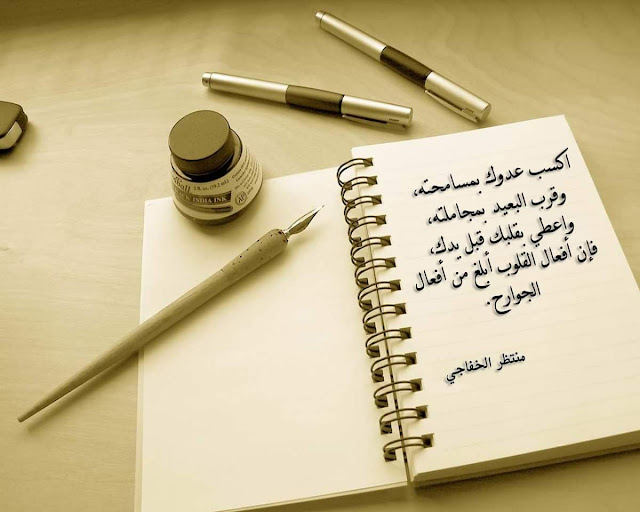 اكسب عدوك بمسامحته،
وقرب البعيد بمجاملته،
واعطي بقلبك قبل يدك،
فإن أفعال القلوب أبلغ من أفعال
الجوارح.
منتظر الخفاجي
INDIA INK